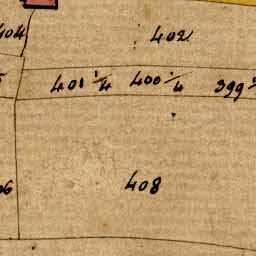 404 402
401 1/4 400 1/4 399
408